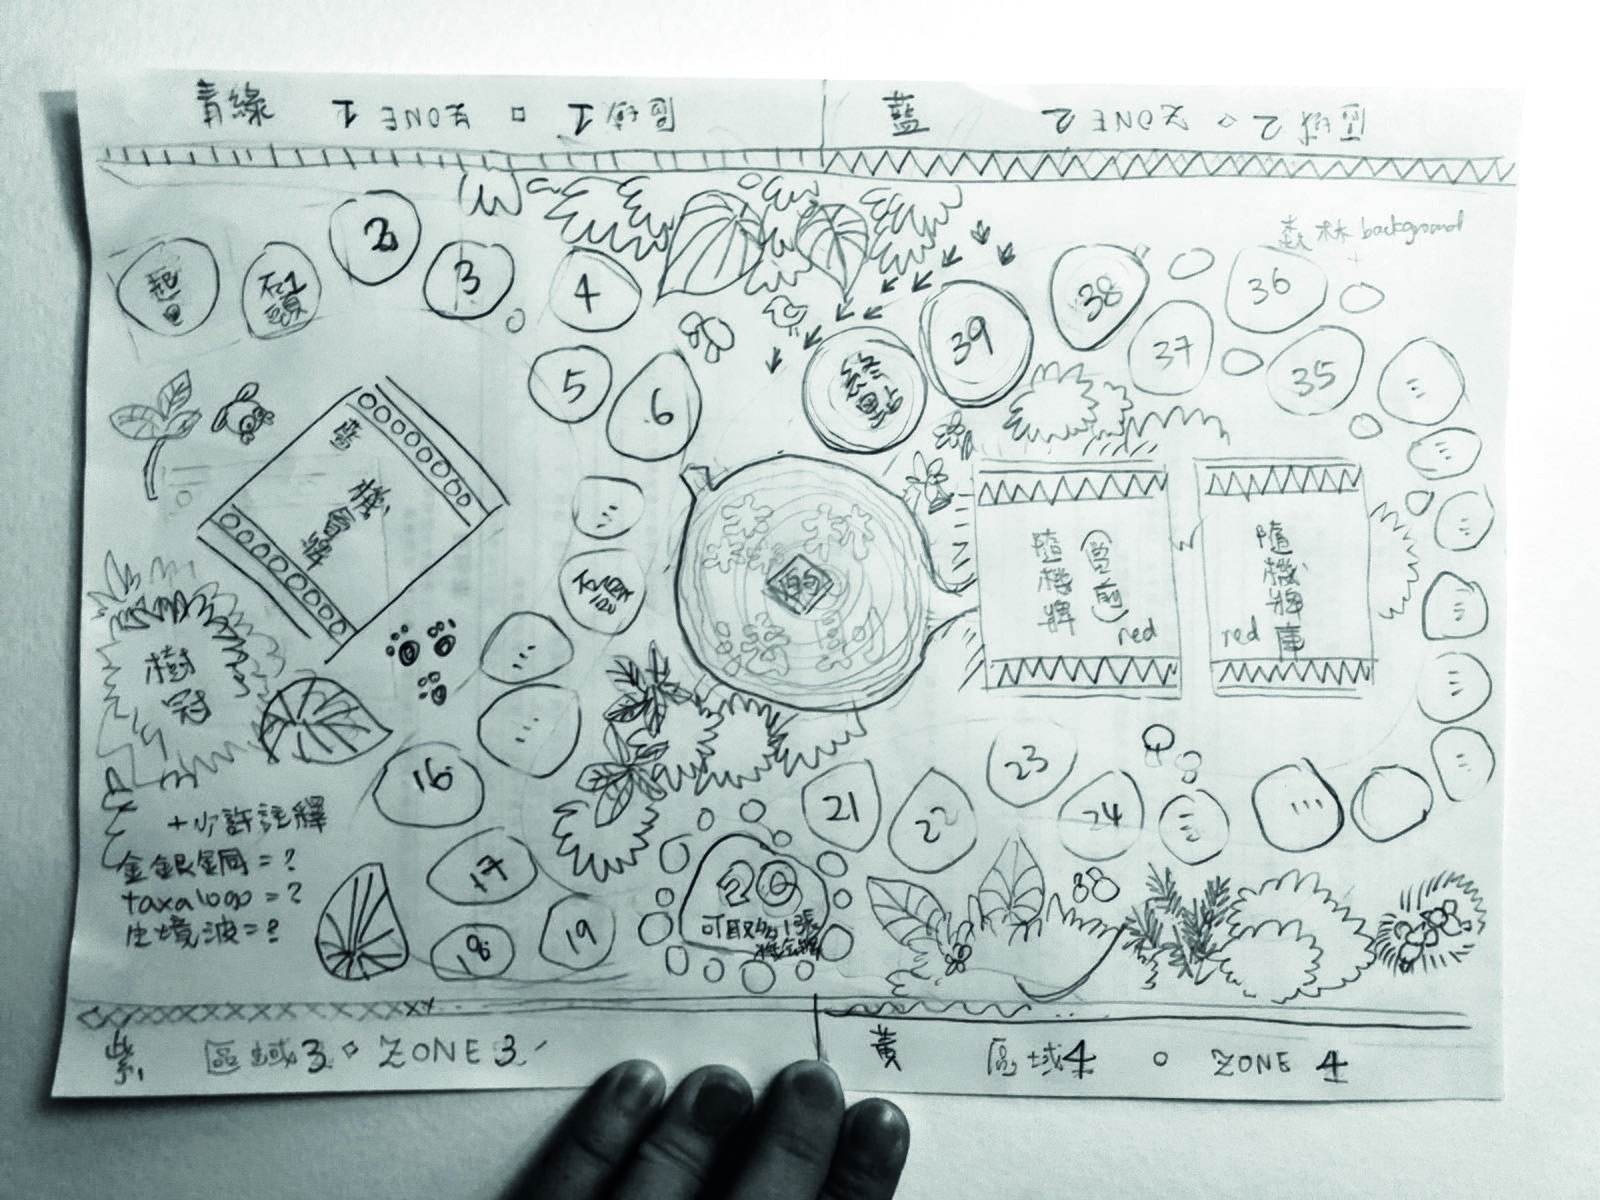 青綠
區域1 ○ ZONE 1
藍
區域2 ○ ZONE 2
森林 background
起點
2
3
4
5
6
39
38
37
36
35
終點
機會牌
隨機牌
(當前)
red
隨機牌庫
red
樹冠
16
17
18
19
20
可取多1張
機會牌
21
22
23
24
+少許註釋
金銀銅=?
taxa logo=?
生境波=?
紫
區域3 ○ ZONE 3
黃
區域4 ○ ZONE 4